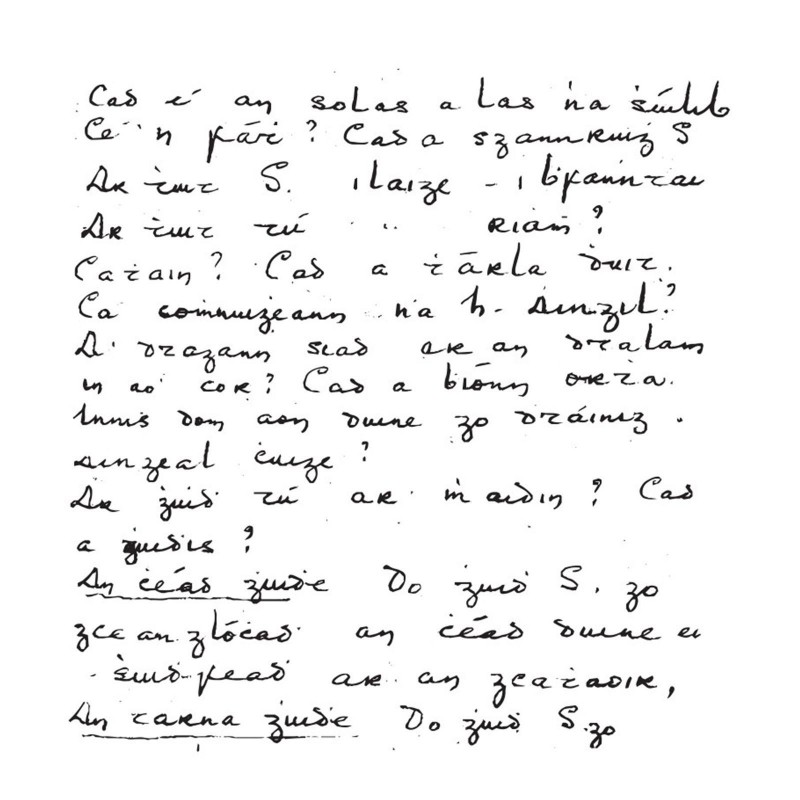 Cad é an solas a las 'na ṡúilib
Cé 'n fáṫ? Cad a sgannruiġ S
Ar ṫuit S. i laige - i bfanntai
Ar ṫuit tú " riaṁ?
Caṫain? Cad a ṫárla ḋuit.
Cá coṁnuiġeann na h- Aingil?
A' dtagann siad ar an dtalaṁ
in ao' cor? Cad a bíonn orṫa.
Innis dom aon duine go dtáiniġ
aingeal ċuige?
Ar ġuid tú ar maidin? Cad
a ġuidis?
An ċéad ġuide Do ġuid S. go
gceanglócad an céad duine
ṡuid-fead ar an gcaṫaoir,
An tarna ġuide Do ġuid S. go